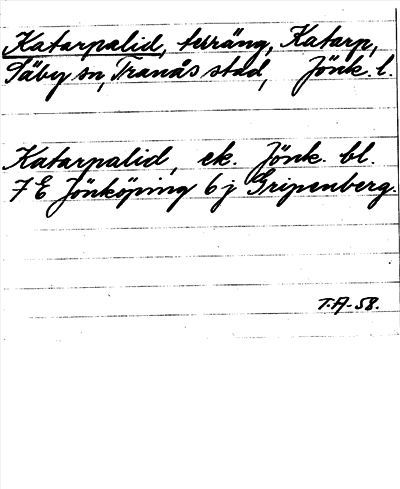 Katarpalid, terräng, Katarp,
Säby sn, Tranås stad, Jönk. l.
Katarpalid, ek. Jönk. bl.
7 E Jönköping 6 j Gripenberg.
T.A-58.